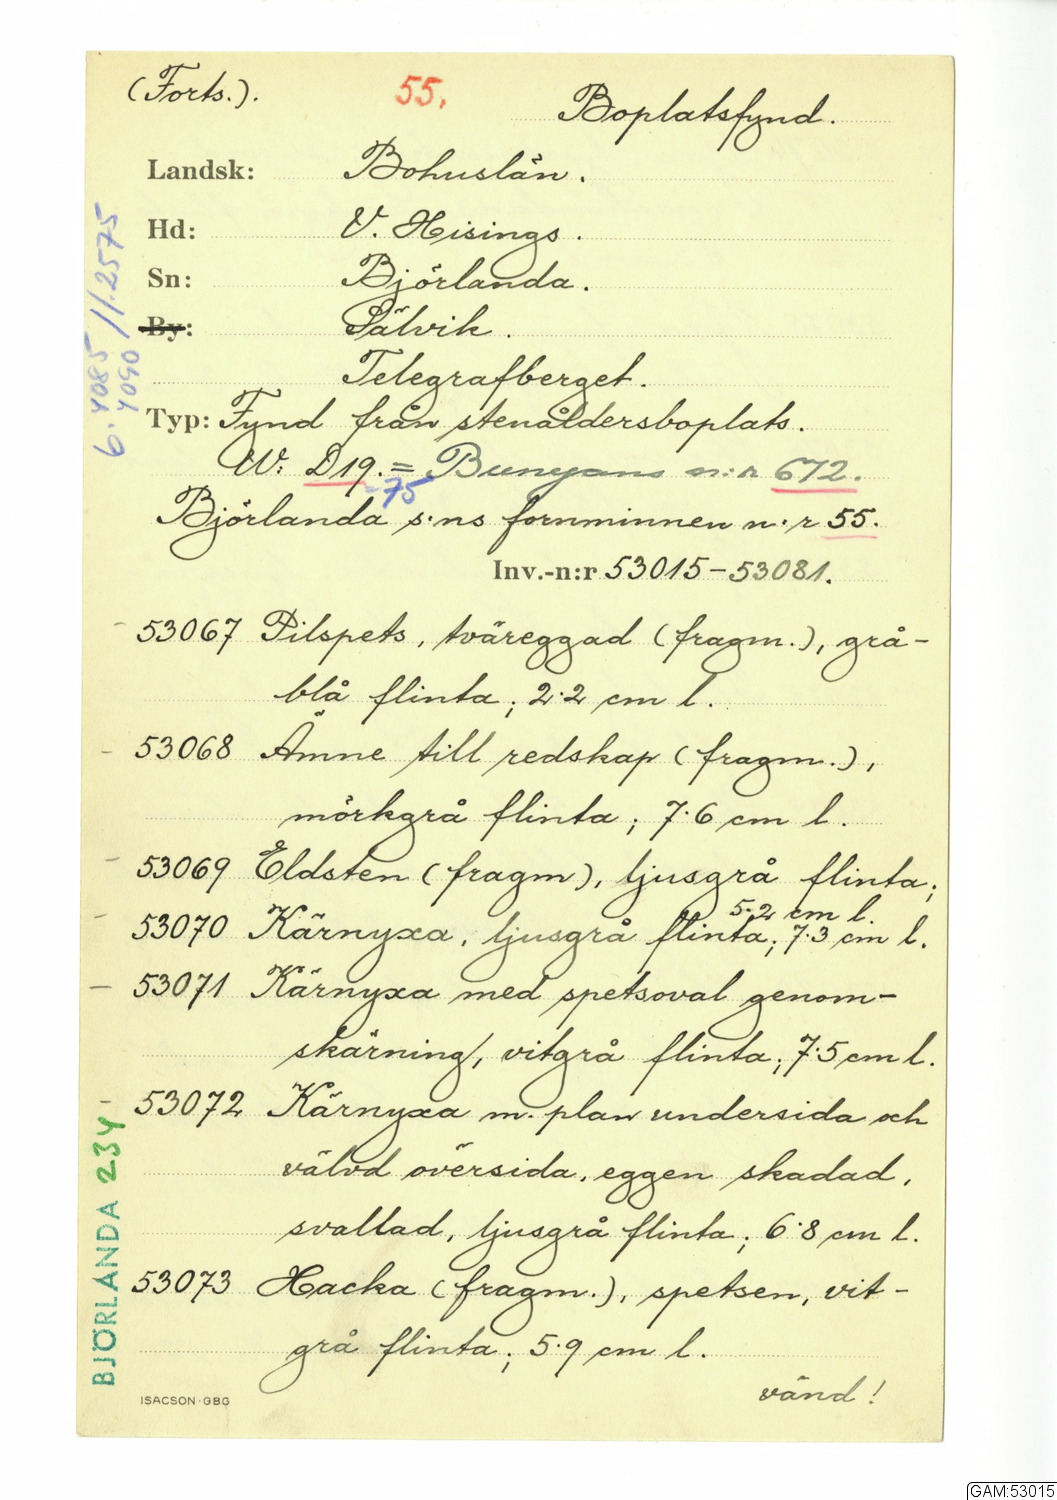 (Forts.). 55. Boplatsfynd.
Landsk: Bohuslän.
Hd: V. Hisings.
Sn: Björlanda.
By: Sälvik.
Telegrafberget.
Typ: Fynd från stenåldersboplats.
W: D19. = Bunyans n:r 672.
-75
Björlanda s:ns fornminnen n:r 55.
Inv.-n:r 53015-53081.
- 53067 Pilspets, tväreggad (fragm.), grå-
blå flinta; 2.2 cm l.
- 53068 Ämne till redskap (fragm.),
mörkgrå flinta; 7.6 cm l.
- 53069 Eldsten (fragm), ljusgrå flinta;
5.2 cm l.
- 53070 Kärnyxa, ljusgrå flinta; 7.3 cm l.
- 53071 Kärnyxa med spetsoval genom-
skärning, vitgrå flinta; 7.5 cm l.
- 53072 Kärnyxa m. plan undersida och
välvd översida, eggen skadad,
svallad, ljusgrå flinta; 6.8 cm l.
53073 Hacka (fragm.), spetsen, vit-
grå flinta; 5.9 cm l.
vänd!
ISACSON·GBG
6. 4085 / 11.2575
4090
BJÖRLANDA 234
GAM:53015